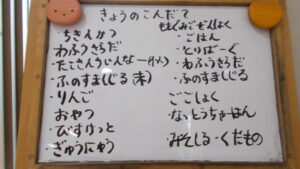 きょうのこんだて
ちきんかつ
わふうさらだ
ふのすましじる(未)
りんご
おやつ
びすけっと
ぎゅうにゅう
ごはん
とりばーぐ
わふうさらだ
ふのすましじる
ごごしょく
なっとうちゃーはん
みそしる・くだもの